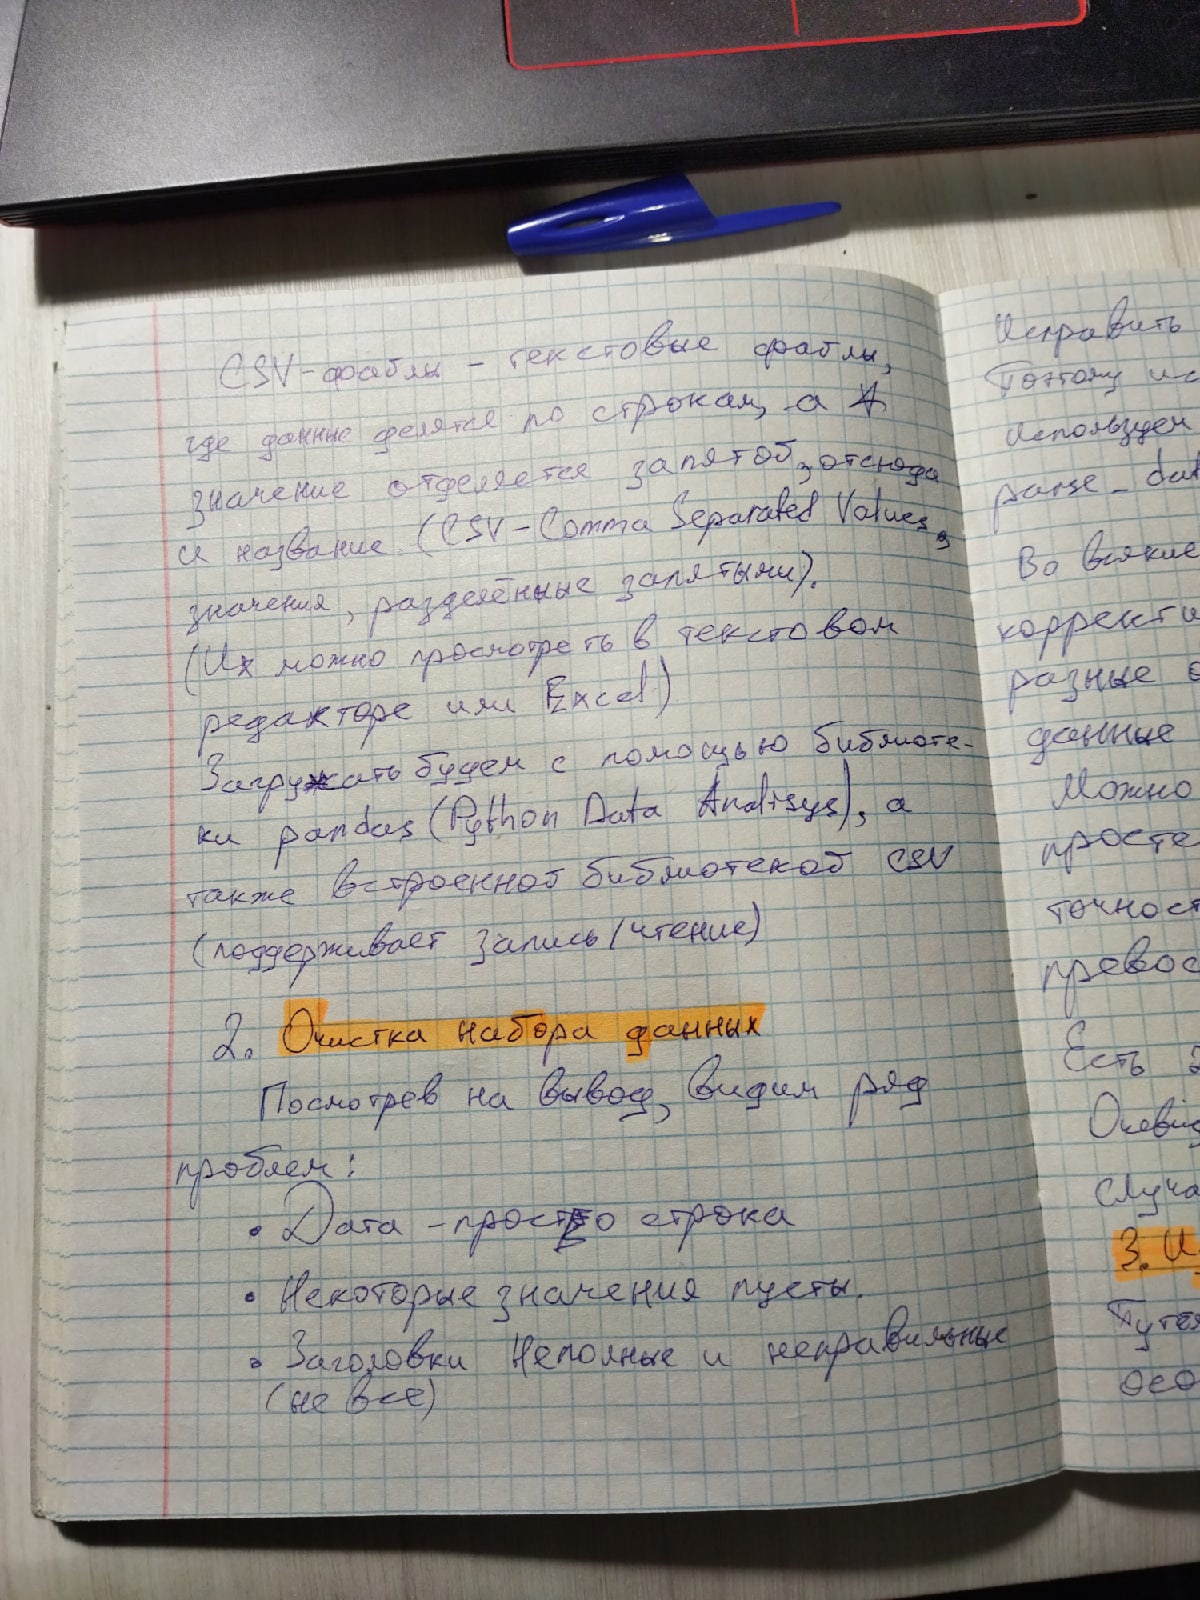 CSV-файлы - текстовые файлы,
где данные делятся по строкам, а
значение отделяется запятой, отсюда
и название (CSV-Comma Separated Values,
значения, разделённые запятыми).
(Их можно просмотреть в текстовом
редакторе или Excel)
Загружать будем с помощью библиоте-
ки pandas (Python Data Analisys), а
также встроенной библиотекой CSV
(поддерживает запись/чтение)
2. Очистка набора данных
Посмотрев на вывод, видим ряд
проблем:
• Дата - просто строка
• Некоторые значения пусты.
• Заголовки Неполные и неправильные
(не все)
Исправить
Поэтому
Используем
parse_dat
Во всякие
корректи
разные о
данные
Можно
просте
точност
превос
Есть
Очевид
Случа
3. И
Путём
осо